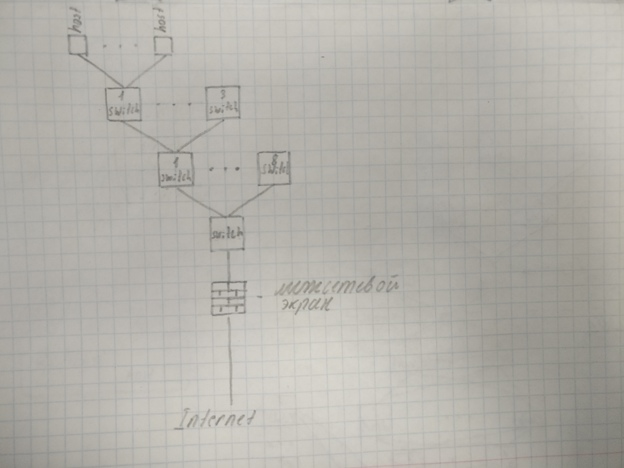 host
host
1
switch
3
switch
1
switch
8
switch
switch
- межсетевой
экран
Internet